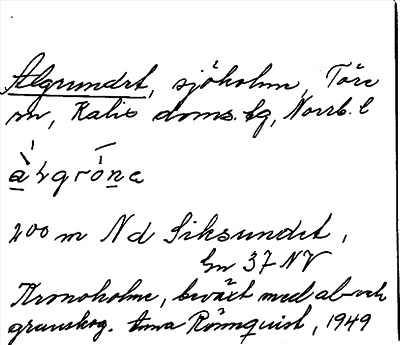 Algrundet, sjöholme, Töre
sn, Kalix doms. tg, Norrb. l
200 m N d Siksundet,
Gn 37 NV
Kronoholme, beväxt med al- och
granskog. Anna Rönnquist, 1949